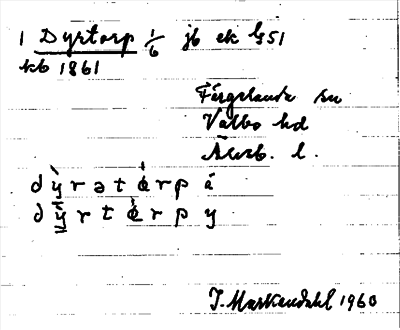 1 Dyrtorp 1/6 jb ek G51
kb 1861
Färgelanda sn
Valbo hd
Älvsb. l.
d ỳ r ə t ȯ r p å
d ỳ r t ȯ r p y
J. Markendahl 1960